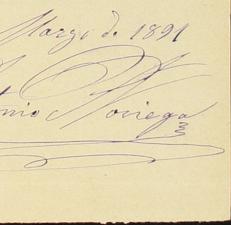 Marzo de 1891
Noriega